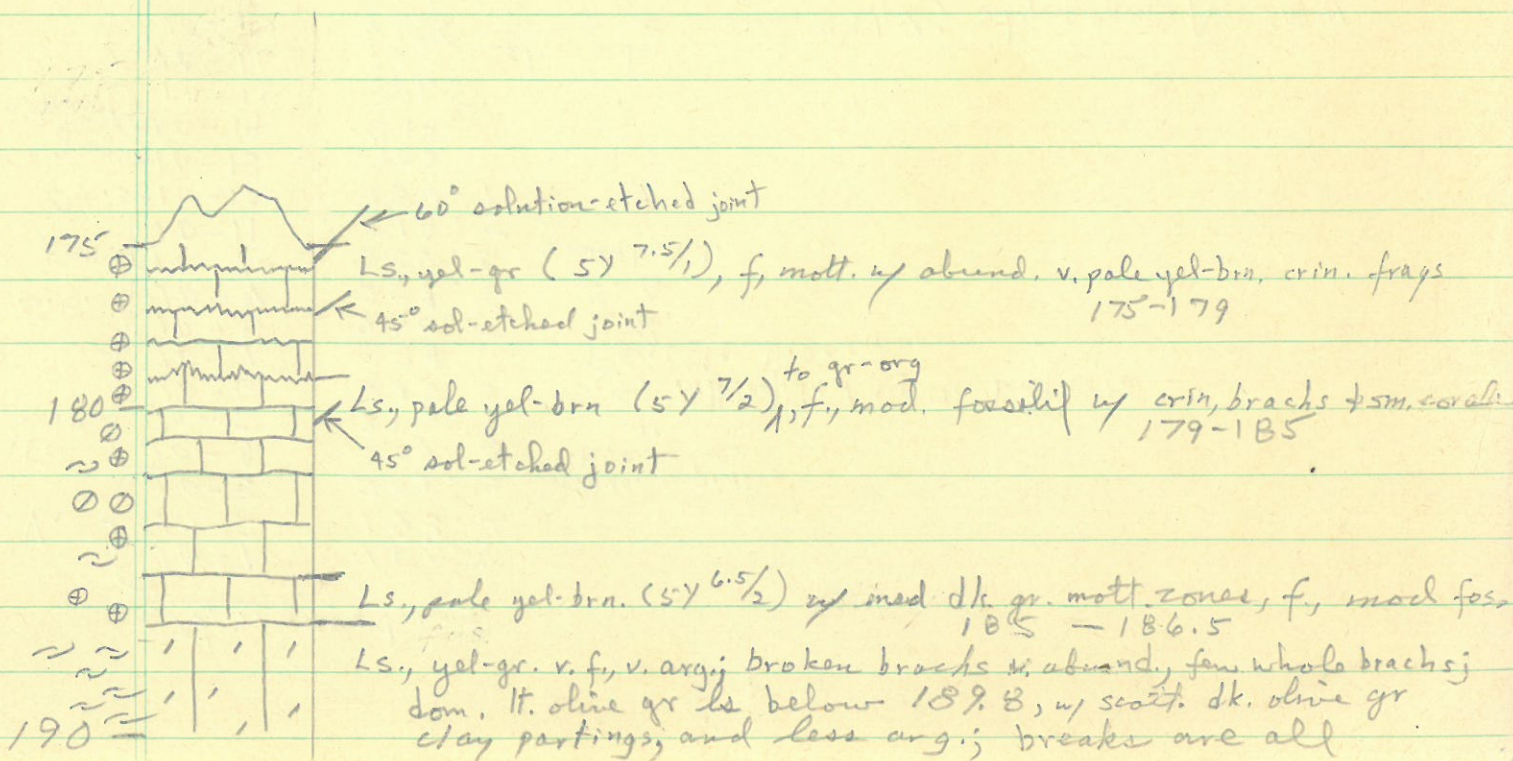 60° solution-etched joint
175
Ls., yel-gr (5Y 7.5/1), f, mott. w/ abund. v. pale yel-brn. crin. frags
175-179
45° sol-etched joint
to gr-org
180 Ls., pale yel-brn (5Y 7/2), f., mod. fossilif w/ crin, brachs & sm. corals
179-185
45° sol-etched joint
Ls., pale yel-brn. (5Y 6.5/2) w/ med dk. gr. mott. zones, f., mod fos.
185 - 186.5
Ls., yel-gr. v. f., v. arg.; broken brachs v. abund., few whole brachs;
dom. lt. olive gr ls below 189.8, w/ scatt. dk. olive gr
190 clay partings, and less arg.; breaks are all